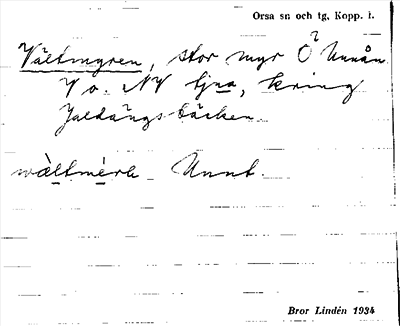 Orsa sn och tg, Kopp. l.
Vältmyren, stor myr Ö Unnån
V o. NV Ljna, kring
Jaldängsbäcken
wältmèrk Unnt.
Bror Lindén 1934